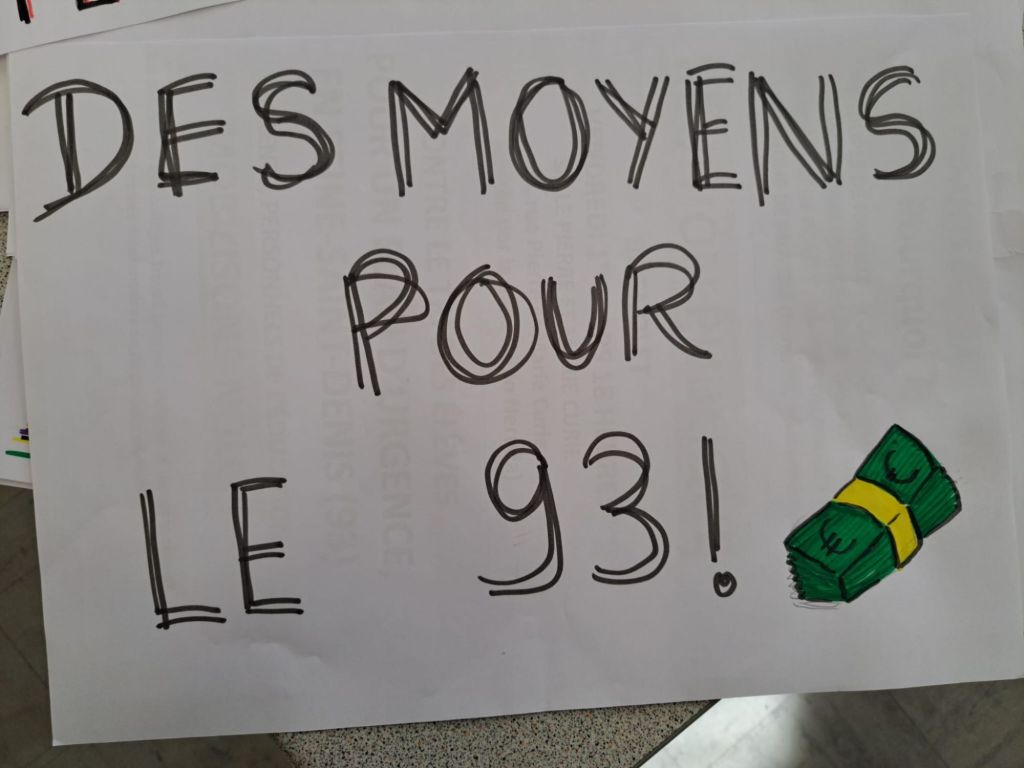 DES MOYENS
POUR
LE 93!
€
€